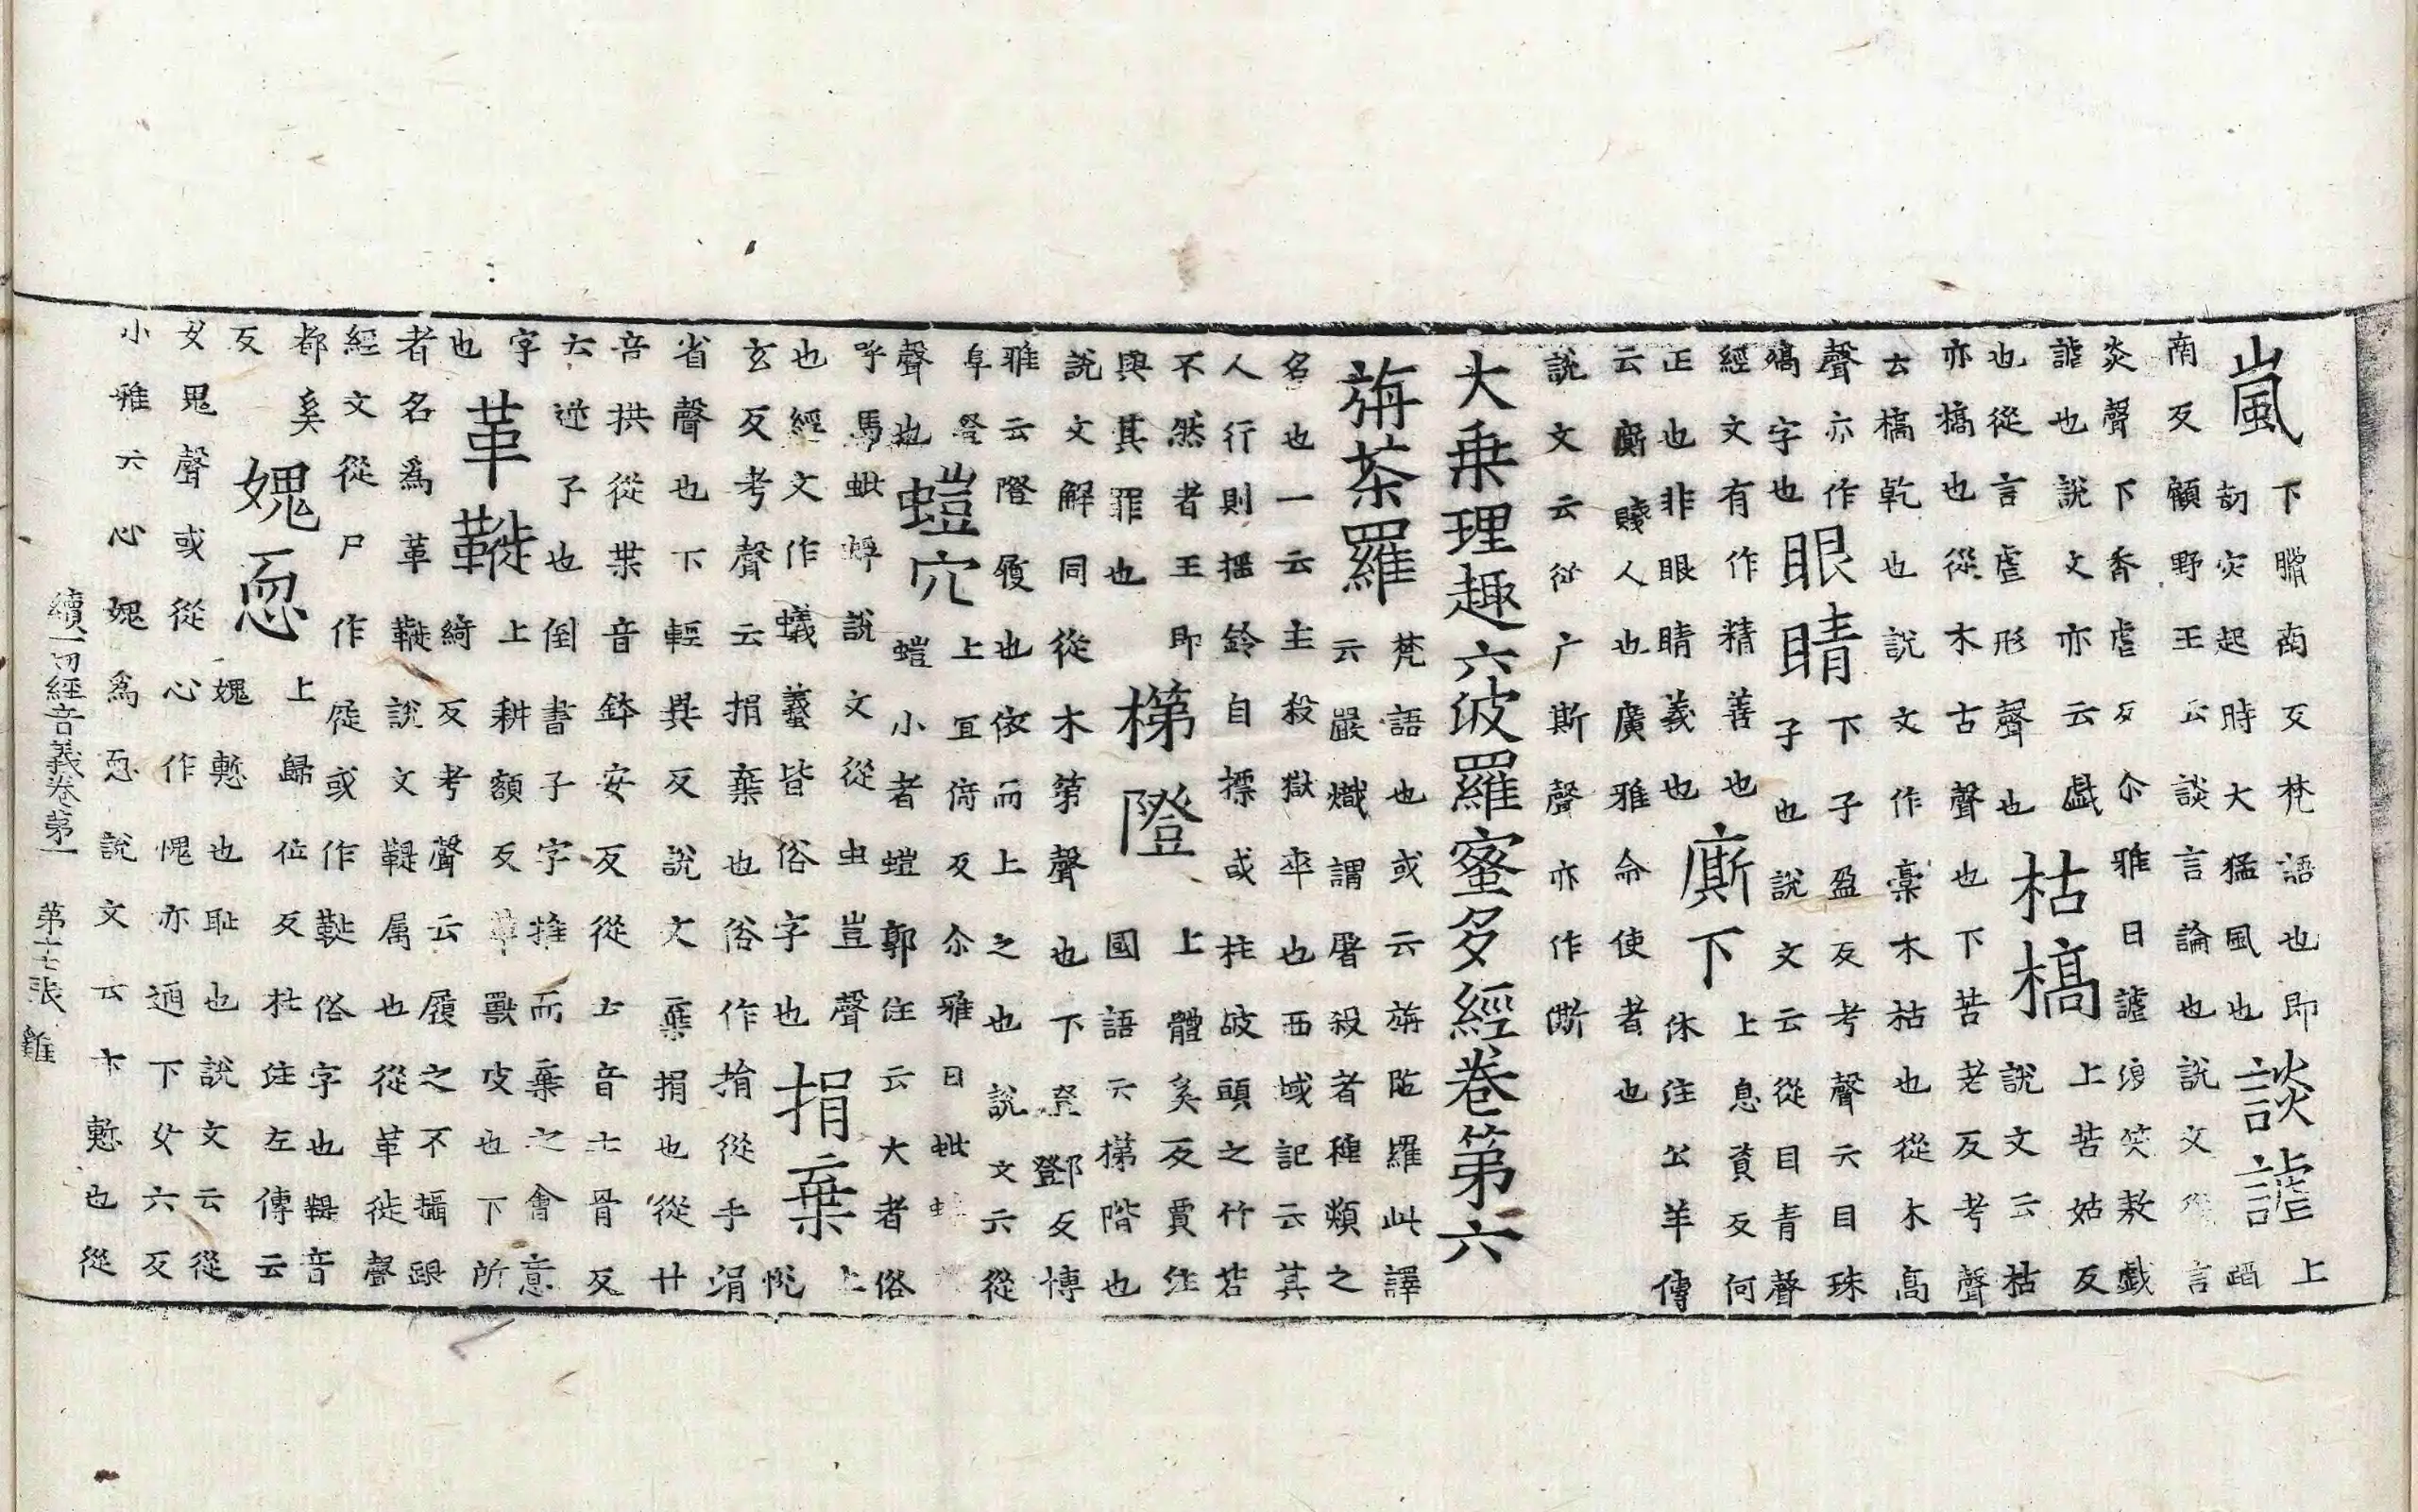 嵐下臘南反梵語也即劫灾起時大猛風也談謔上蹈
南反顧野王云談言論也說文從言
炎聲下香虐反尒雅曰謔浪笑敖戲
謔也說文亦云戲也從言虐形聲也枯槁上苦姑反說文云枯
亦槁也從木古聲也下苦老反考聲
云槁乾也說文作槀木枯也從木高
聲亦作槁字也眼睛下子盈反考聲云目珠子也說文云從目青聲
經文有作精善也正也非眼睛義也廝下上息賫反何休注公羊傳
云廝賤人也廣雅命使者也
說文云從广斯聲亦作㒋
大乗理趣六波羅蜜多經卷第六
旃荼羅梵語也或云旃陁羅此譯云嚴熾謂屠殺者種類之
名也一云主殺獄卒也西域記云其
人行則揺鈴自摽或柱破頭之竹若
不然者王即與其罪也梯隥上體奚反賈注國語云梯階也
說文解同從木第聲也下登鄧反博
雅云隥履也依而上之也說文云從
阜登聲也螘穴上冝倚反尒雅曰蚍螘小者螘郭注云大者俗
呼馬蚍蜉說文從虫豈聲也經文作蟻䘃皆俗字也捐棄上悅
玄反考聲云捐棄也俗作捎從手涓
省聲也下輕異反說文棄捐也從廾
音拱從𠦒音鉢安反從𠫓音土骨反
云逆子也倒書子字推而棄之會意
字也革𩌦上耕額反革獸皮也下所綺反考聲云履之不攝跟
者名爲革𩌦說文鞮属也從革徙聲
經文從尸作屣或作俗字也鞮音
都奚反媿恧上歸位反杜注左傳云媿慙也耻也說文云從
女鬼聲或從心作愧亦通下女六反
小雅云心媿爲恧說文云亦慙也從
續一切經音義卷第一 第十七張 雞